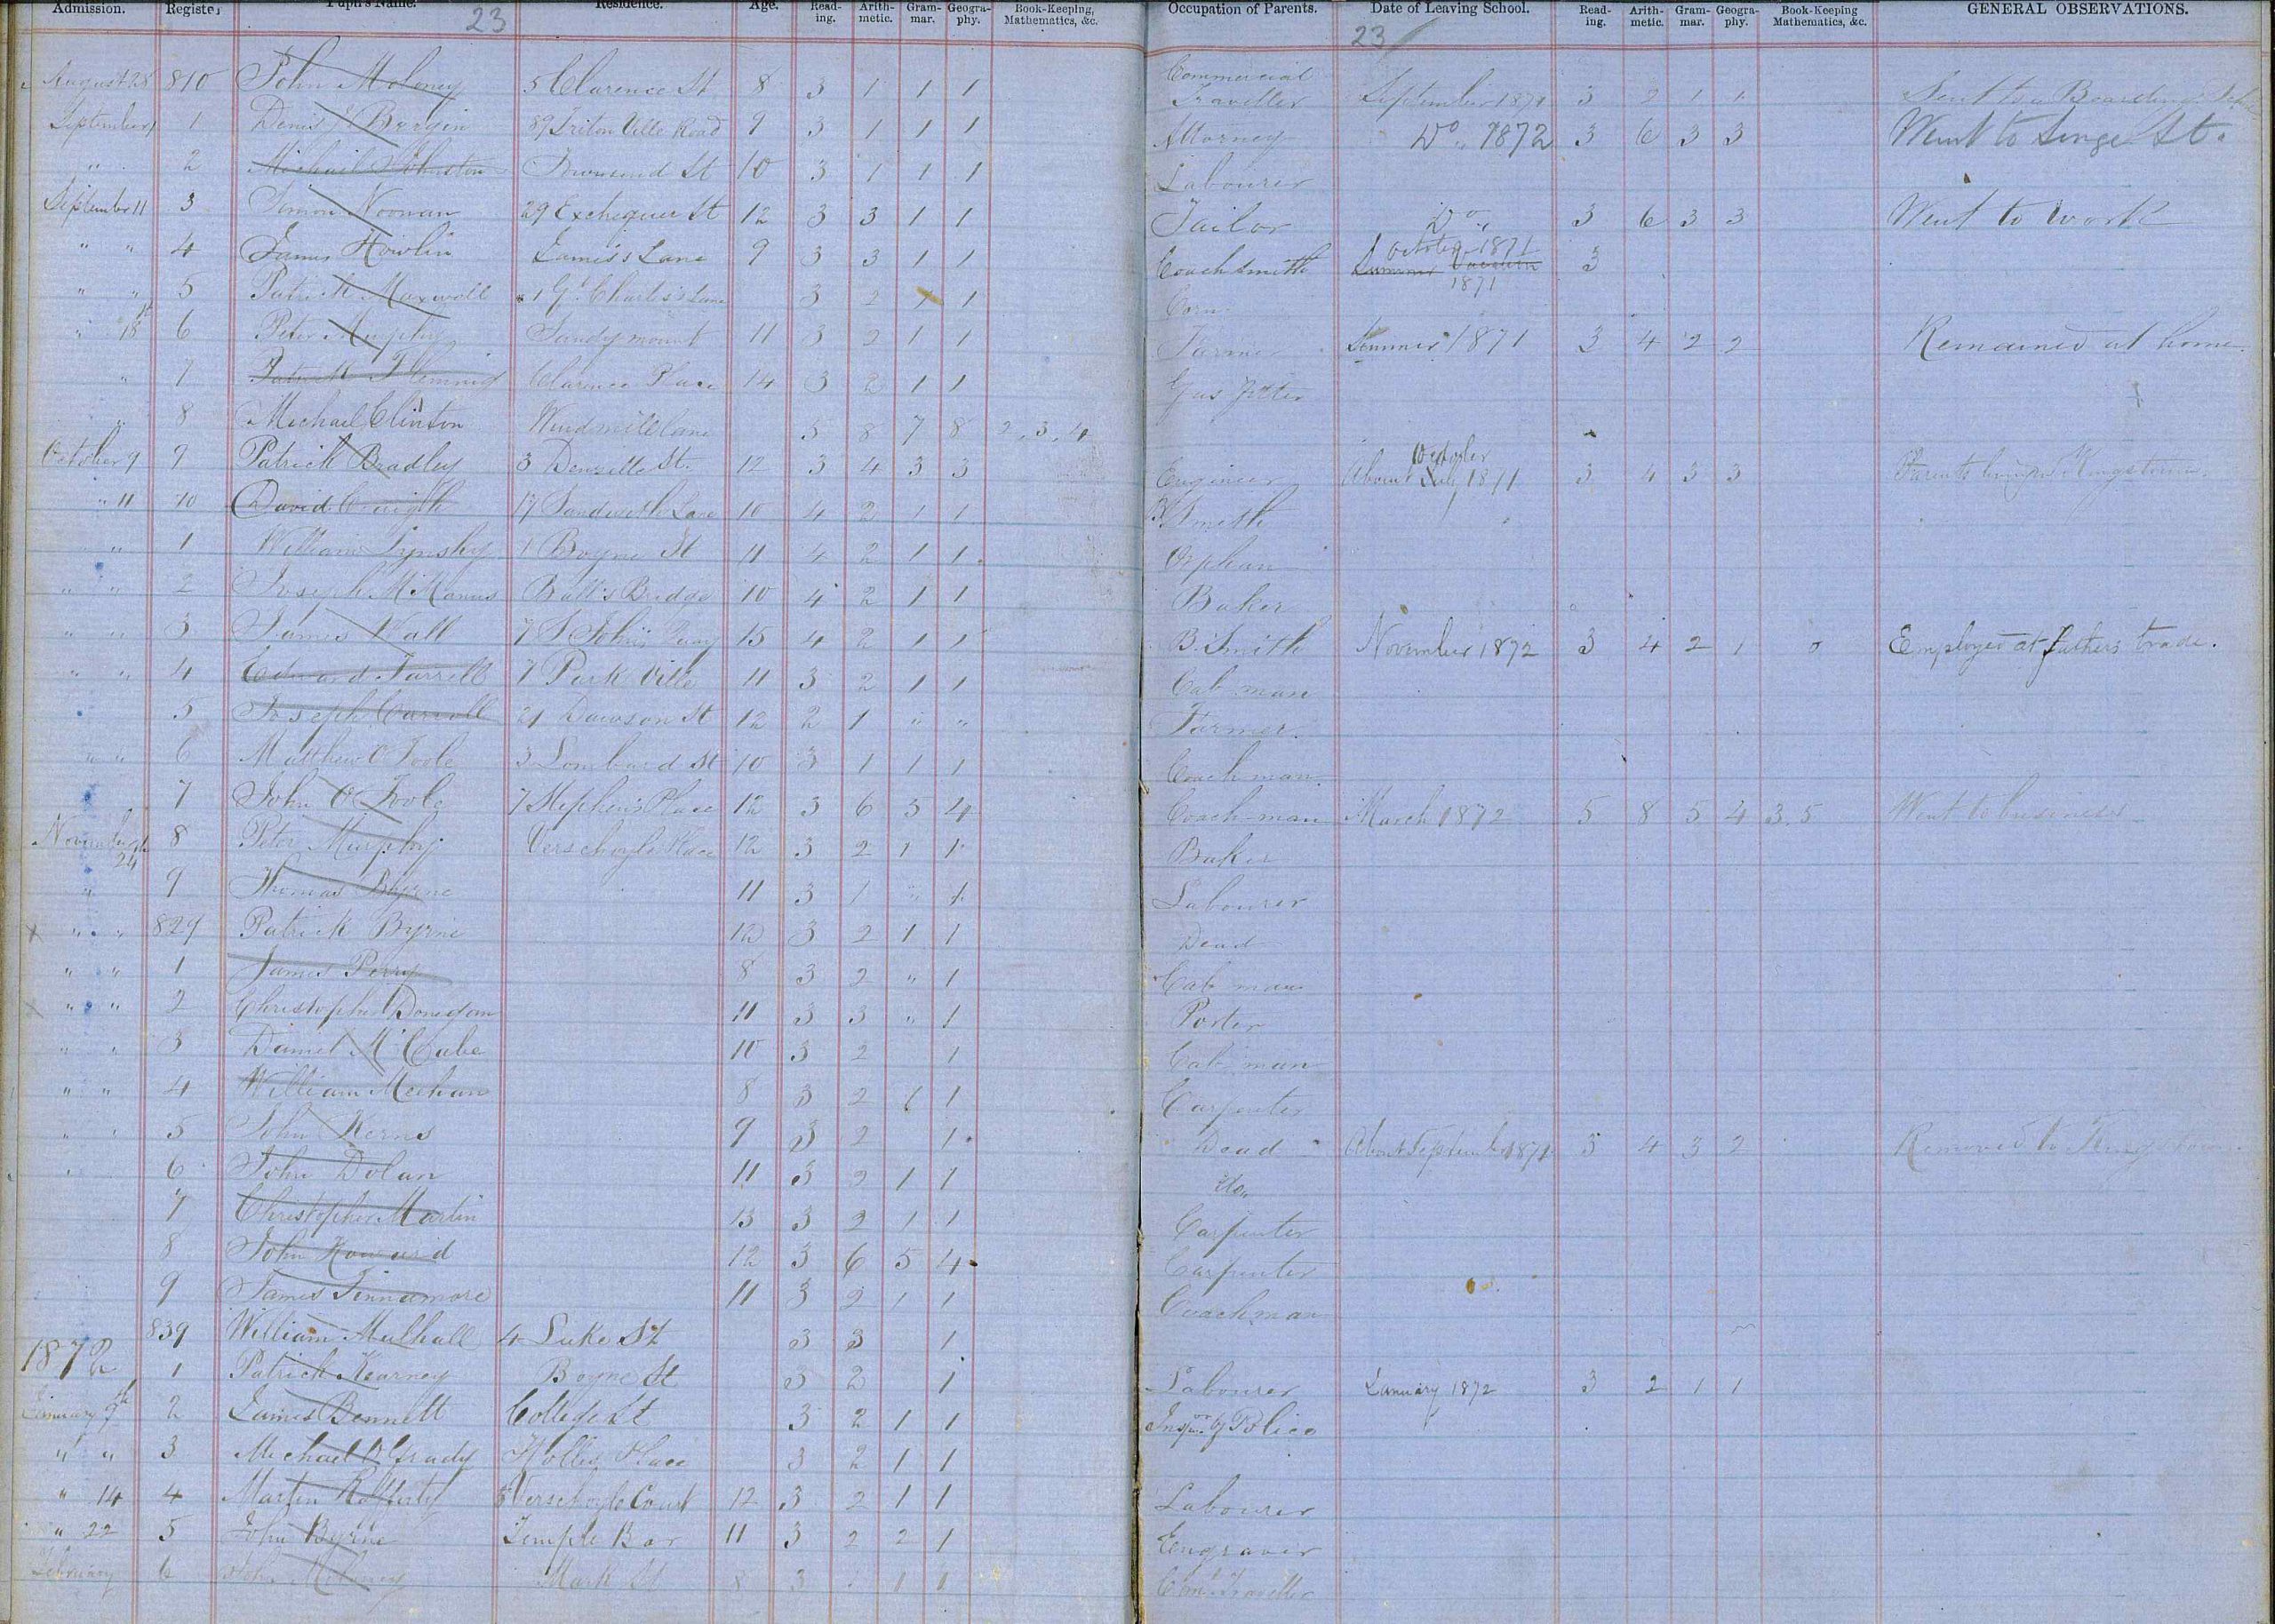 Admission. Register Pupil's Name. Residence. Age. Read-ing. Arith-metic. Gram-mar. Geogra-phy. Book-Keeping, Mathematics, &c. Occupation of Parents. Date of Leaving School. Read-ing. Arith-metic. Gram-mar. Geogra-phy. Book-Keeping Mathematics, &c. GENERAL OBSERVATIONS.
23 23
August 28 810 John Moloney 5 Clarence St 8 3 1 1 1 Commercial Traveller September 1871 3 2 1 1 Sent to a Boarding
September 1 Denis J Bergin 89 Triton Ville Road 9 3 1 1 1 Attorney Do " 1872 3 6 3 3 Went to Synge St.
" 2 Michael Johnston Townsend St 10 3 1 1 1 Labourer
September 11 3 Simon Noonan 29 Exchequer St 12 3 3 1 1 Tailor Do " 3 6 3 3 Went to work
" " 4 James Howlin James's Lane 9 3 3 1 1 Coachsmith October 1871 Summer Vacation 1871 3
" " 5 Patrick Maxwell 1 Gt Charles's Lane 3 2 1 1
" 18th 6 Peter Murphy Sandymount 11 3 2 1 1 Farmer Summer 1871 3 4 2 2 Remained at home.
" 7 Patrick Flemming Clarence Place 14 3 2 1 1 Gas fitter
" 8 Michael Clinton Windmill lane 5 8 7 8 2, 3, 4
October 9 9 Patrick Bradley 3 Denzille St. 12 3 4 3 3 Engineer About July October 1871 3 4 3 3 Parents living in Kingstown.
" 11 10 David Creight 17 Sandwith Lane 10 4 2 1 1 B. Smith
" " 1 William Lynsky 1 Boyne St 11 4 2 1 1. Orphan
" " 2 Joseph McManus Butt's Bridge 10 4 2 1 1 Baker
" " 3 James Wall 7 S Johns Quay 15 4 2 1 1 B. Smith November 1872 3 4 2 1 0 Employed at fathers trade.
" " 4 Edward Farrell 7 Park Ville 11 3 2 1 1 Cab man
5 Joseph Carroll 21 Dawson St 12 2 1 " " Farmer.
" " 6 Matthew O'Toole 3 Lombard St 10 3 1 1 1 Coachman
7 John O'Toole 7 Stephen's Place 12 3 6 5 4 Coach-man March 1872 5 8 5 4 3.5 Went to business
November 24 8 Peter Murphy Verschoyle Place 12 3 2 1 1 Baker
" 9 Thomas Byrne 11 3 1 " 1 Labourer
" " 829 Patrick Byrne 12 3 2 1 1 Dead
" " 1 James Perry 8 3 2 " 1 Cab man
" " 2 Christopher Donegan 11 3 3 " 1 Porter
" " 3 Daniel McCabe 10 3 2 1 Cab man
" " 4 William Meehan 8 3 2 1 1 Carpenter
" " 5 John Kerns 9 3 2 1. Dead About September 1871 3 4 3 2 Removed to Kingstown.
" 6 John Dolan 11 3 2 1 1 Do"
" 7 Christopher Martin 13 3 2 1 1 Carpenter
8 John Howard 12 3 6 5 4 Carpenter
9 James Finnamore 11 3 2 1 1 Coachman
839 William Mulhall 4 Luke St 3 3 1
1872 1 Patrick Kearney Boyne St 3 2 1 Labourer January 1872 3 2 1 1
January 9th 2 James Bennett College St 3 2 1 1 Inspr of Police
" " 3 Michael O'Grady Holles Place 3 2 1 1
" 14 4 Martin Rafferty 8 Verschoyle Court 12 3 2 1 1 Labourer
" 22 5 John Byrne Temple Bar 11 3 2 2 1 Engraver
February 6 John Moloney Mark St 8 3 1 1 1 Coml Traveller